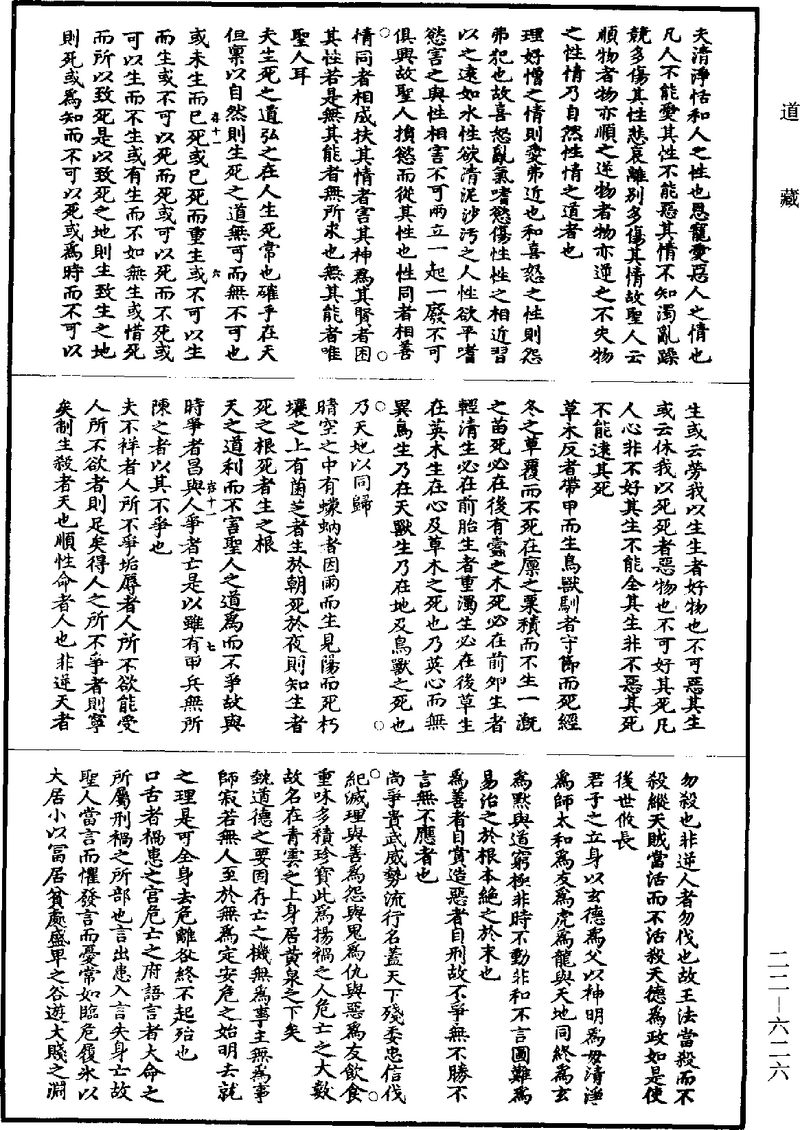 道藏
夫清淨恬和人之性也恩寵愛惡人之情也
凡人不能愛其性不能惡其情不知濁亂躁
競多傷其性悲哀離別多傷其情故聖人云
順物者物亦順之逆物者物亦逆之不失物
之性情乃自然性情之道者也
理好憎之情則愛弗近也和喜怒之性則怨
弗犯也故喜怒亂氣嗜慾傷性性之相近習
以之遠如水性欲清泥沙汚之人性欲平嗜
慾害之與性相害不可兩立一起一廢不可
俱興故聖人損慾而從其性也性同者相善
情同者相成扶其情者害其神爲其賢者困
其性若是無其能者無所求也無其能者唯
聖人耳
夫生死之道弘之在人生死常也確乎在天
但稟以自然則生死之道無可而無不可也
或未生而已死或已死而重生或不可以生
而生或不可以死而死或可以死而不死或
可以生而不生或有生而不如無生或惜死
而所以致死是以致死之地則生致生之地
則死或爲知而不可以死或爲時而不可以
生或云勞我以生生者好物也不可惡其生
或云休我以死死者惡物也不可好其死凡
人心非不好其生不能全其生非不惡其死
不能遠其死
草木反者帶甲而生鳥獸馴者守節而死經
冬之草覆而不死在廩之粟積而不生一溉
之苗死必在後有蠹之木死必在前卵生者
輕清生必在前胎生者重濁生必在後草生
在英木生在心及草木之死也乃英心而無
異鳥生乃在天獸生乃在地及鳥獸之死也
乃天地以同歸
晴空之中有蠛蚋者因雨而生見陽而死朽
壤之上有菌芝者生於朝死於夜則知生者
死之根死者生之根
天之道利而不害聖人之道爲而不爭故與
時爭者昌與人爭者亡是以雖有甲兵無所
陳之者以其不爭也
夫不祥者人所不爭垢辱者人所不欲能受
人所不欲者則足矣得人之所不爭者則寧
矣制生殺者天也順性命者人也非逆天者
勿殺也非逆人者勿伐也故王法當殺而不
殺縱天賊當活而不活殺天德爲政如是使
後世攸長
君子之立身以玄德爲父以神明爲母清淨
爲師太和爲友爲虎爲龍與天地同終爲玄
爲默與道窮極非時不動非和不言圖難爲
易治之於根本絕之於末也
爲善者自賞造惡者自刑故不爭無不勝不
言無不應者也
尚爭貴武威勢流行名蓋天下殘委忠信伐
紀滅理與善爲怨與鬼爲仇與惡爲友飲食
重味多積珍寶此爲揚禍之人危亡之大數
故名在青雲之上身居黃泉之下矣
魏道德之要因存亡之機無爲事主無爲事
師寂若無人至於無爲定安危之始明去就
之理是可全身去危離欲終不起殆也
口舌者禍患之宮危亡之府語言者大命之
所屬刑禍之所部也言出患入言失身亡故
聖人當言而懼發言而憂常如臨危履氷以
大居小以富居貧處盛卑之谷遊大賤之淵
二二—六二六